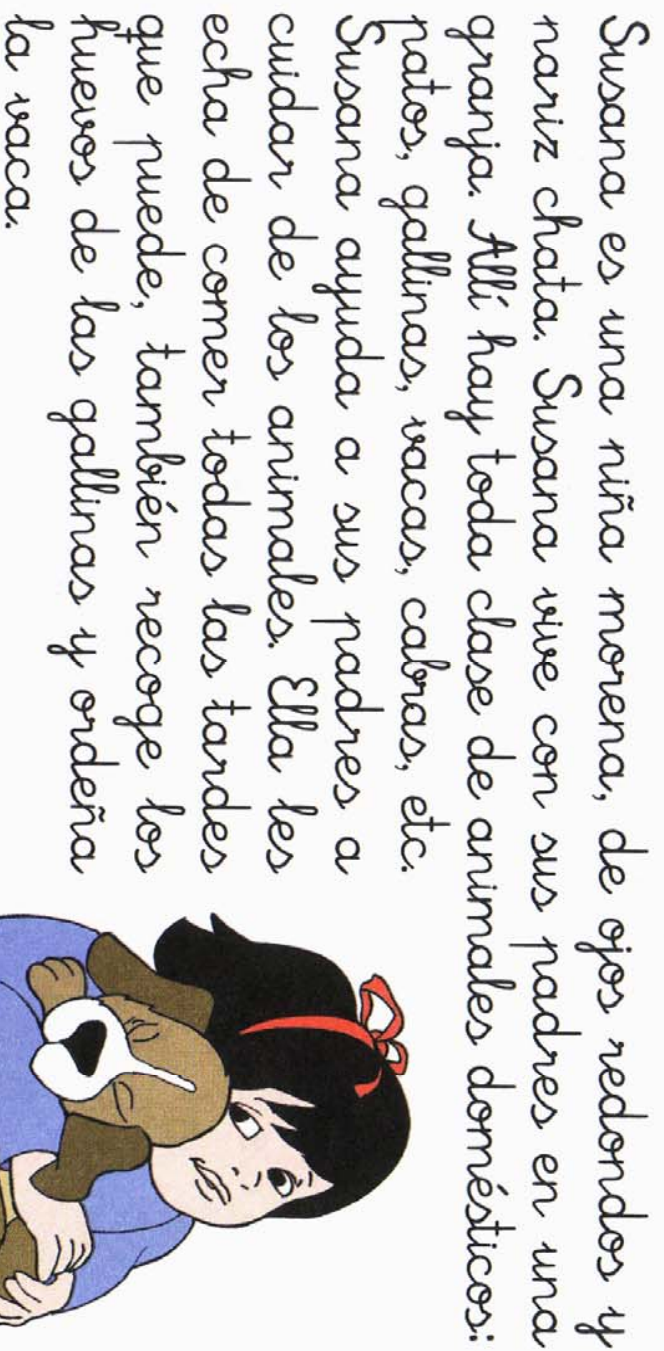 Susana es una niña morena, de ojos redondos y
nariz chata. Susana vive con sus padres en una
granja. Allí hay toda clase de animales domésticos:
patos, gallinas, vacas, cabras, etc.
Susana ayuda a sus padres a
cuidar de los animales. Ella les
echa de comer todas las tardes
que puede, también recoge los
huevos de las gallinas y ordeña
la vaca.